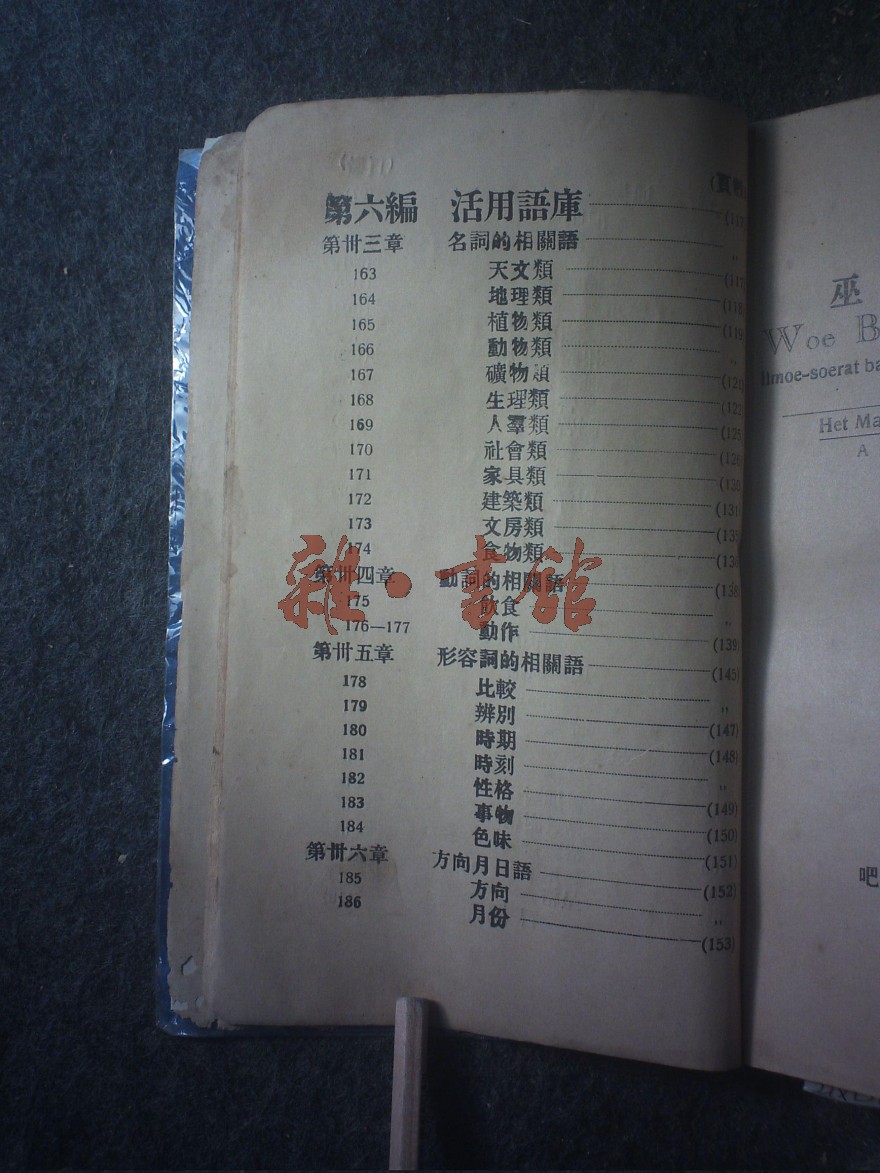 第六編 活用語庫
第卅三章 名詞的相關語 〃
163 天文類 (117)
164 地理類 (118)
165 植物類 (119)
166 動物類 〃
167 礦物類 (121)
168 生理類 (122)
169 人羣類 (125)
170 社會類 (126)
171 家具類 (130)
172 建築類 (131)
173 文房類 (135)
174 食物類 (136)
第卅四章 動詞的相關語 (138)
175 飲食 〃
176—177 動作 (139)
第卅五章 形容詞的相關語 (145)
178 比較 〃
179 辨別 (147)
180 時期 (148)
181 時刻 〃
182 性格 (149)
183 事物 (150)
184 色味 (151)
第卅六章 方向月日語 (152)
185 方向 〃
186 月份 (153)
雜·書館
巫
Woe B
Ilmoe-soerat ba
Het Ma
A
吧